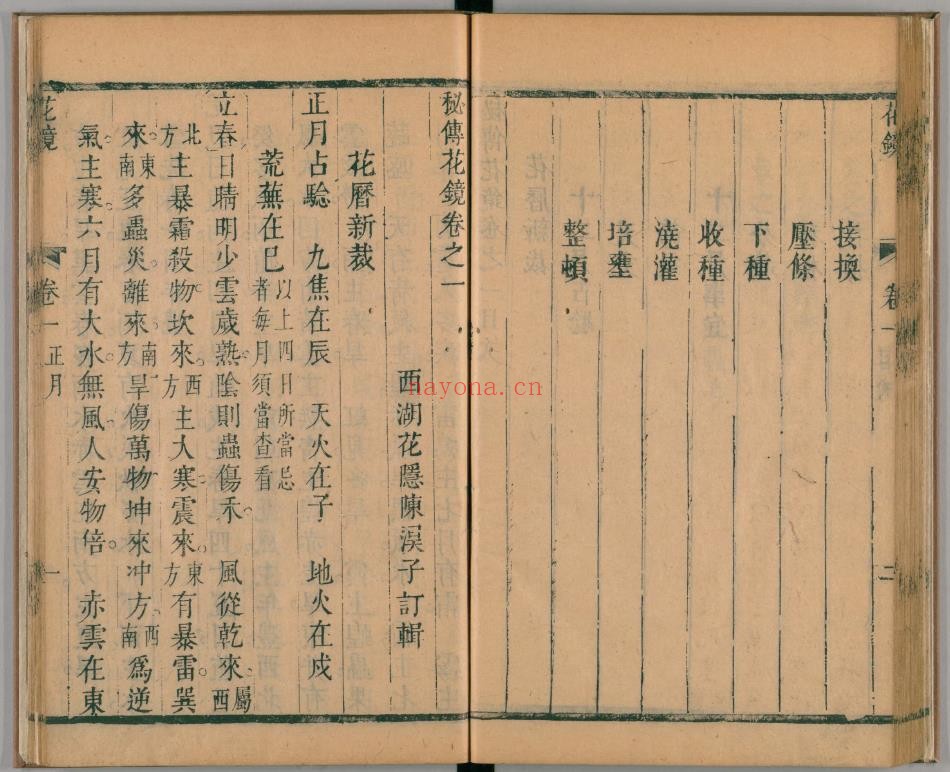 花鏡
卷一
二
接換
壓條
下種
收種
澆灌
培壅
整頓
秘傳花鏡卷之一
西湖花隱陳淏子訂輯
花曆新裁
正月占驗 九焦在辰 天火在子 地火在戌
荒蕪在巳以上四日所當忌者每月須當查看
立春日晴明少雲歲熟陰則蟲傷禾。風從乾來。屬西
北方主暴霜殺物坎來。西方主大寒震來。東方有暴雷巽
來。東南多蟲災。離來。南方旱傷萬物坤來冲方。西南爲逆
氣主寒。六月有大水無風人安物倍。赤雲在東
花鏡
卷一
正月
一
nayona.cn